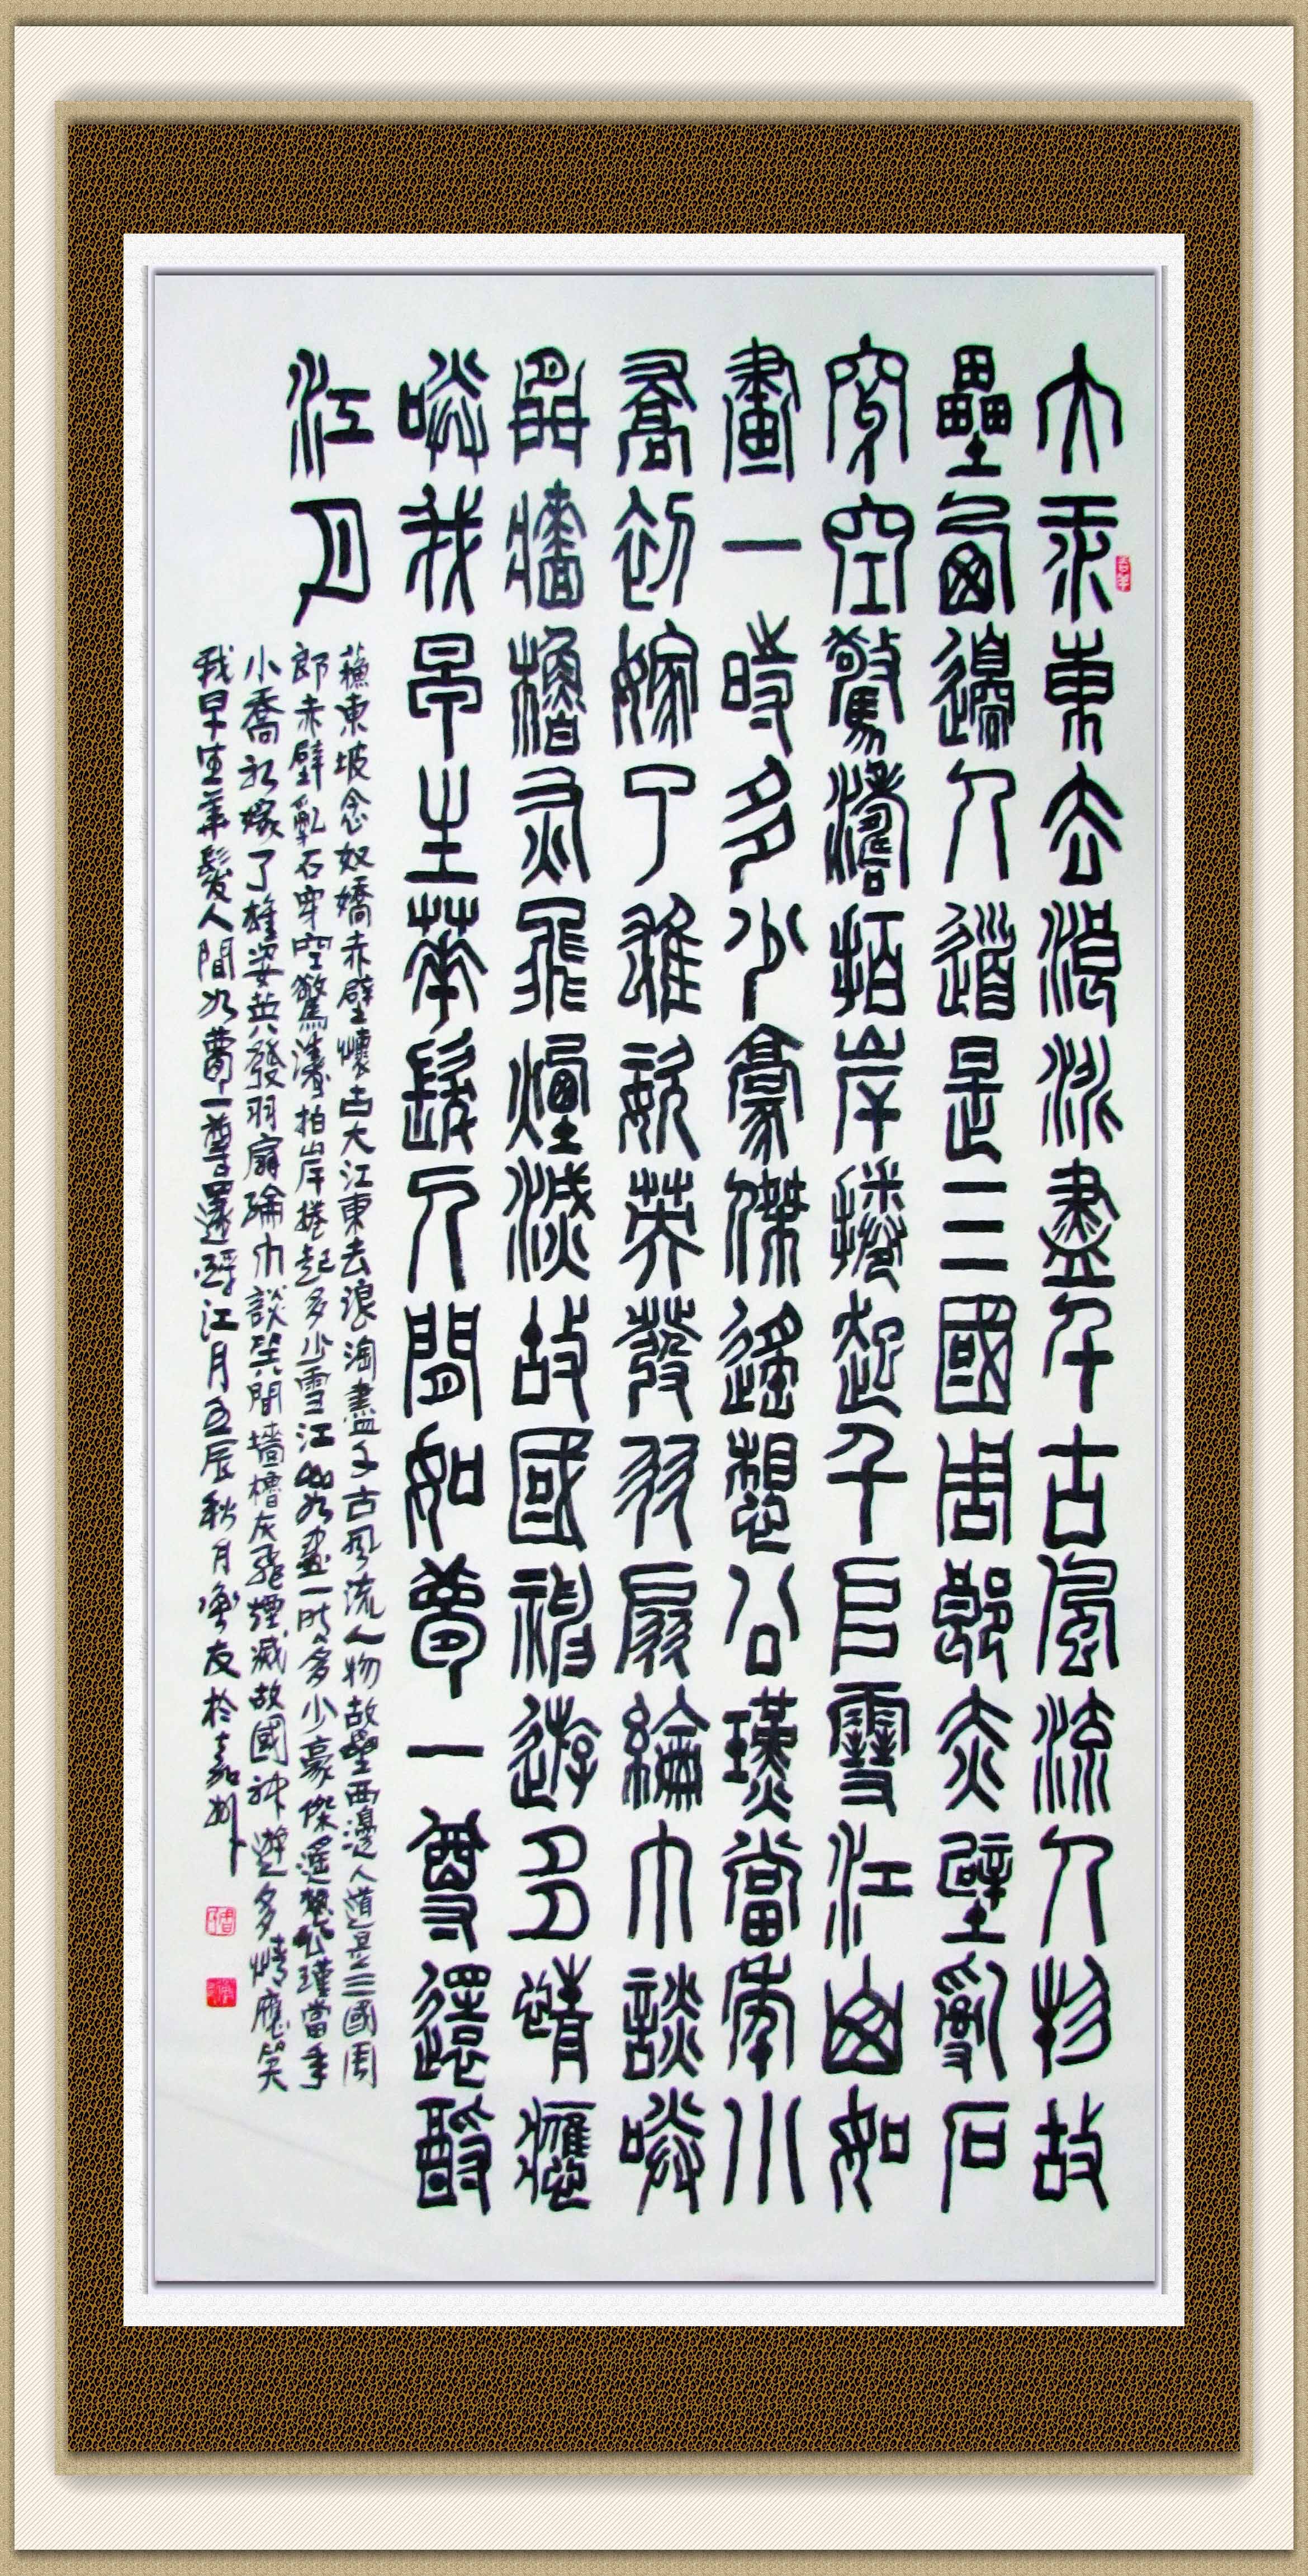 大江東去浪淘盡千古風流人物故
壘西邊人道是三國周郎赤壁亂石
穿空驚濤拍岸捲起千堆雪江山如
畫一時多少豪傑遙想公瑾當年小
喬初嫁了雄姿英發羽扇綸巾談笑
間牆櫓灰飛煙滅故國神遊多情應
笑我早生華髮人間如夢一尊還酹
江月
蘇東坡念奴嬌赤壁懷古大江東去浪淘盡千古風流人物故壘西邊人道是三國周
郎赤壁亂石穿空驚濤拍岸捲起多少雪江山如畫一時多少豪傑遙想公瑾當年
小喬初嫁了雄姿英發羽扇綸巾談笑間墻櫓灰飛煙滅故國神遊多情應笑
我早生華髮人間如夢一尊還酹江月壬辰秋月友於嘉州